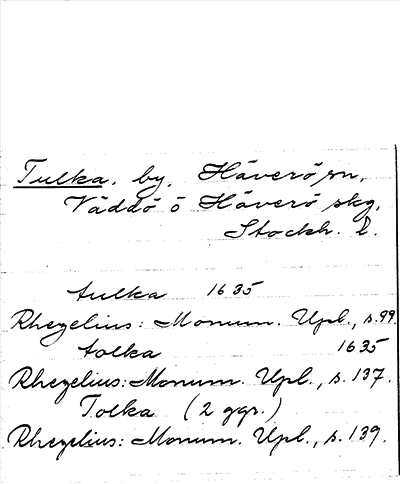 Tulka, by, Häverö sn,
Väddö o Häverö skg,
Stockh. l.
tulka 1635
Rhezelius: Monum. Upl., s.99.
tolka 1635
Rhezelius: Monum. Upl., s.137.
Tolka (2 ggr.)
Rhezelius: Monum. Upl., s.139.